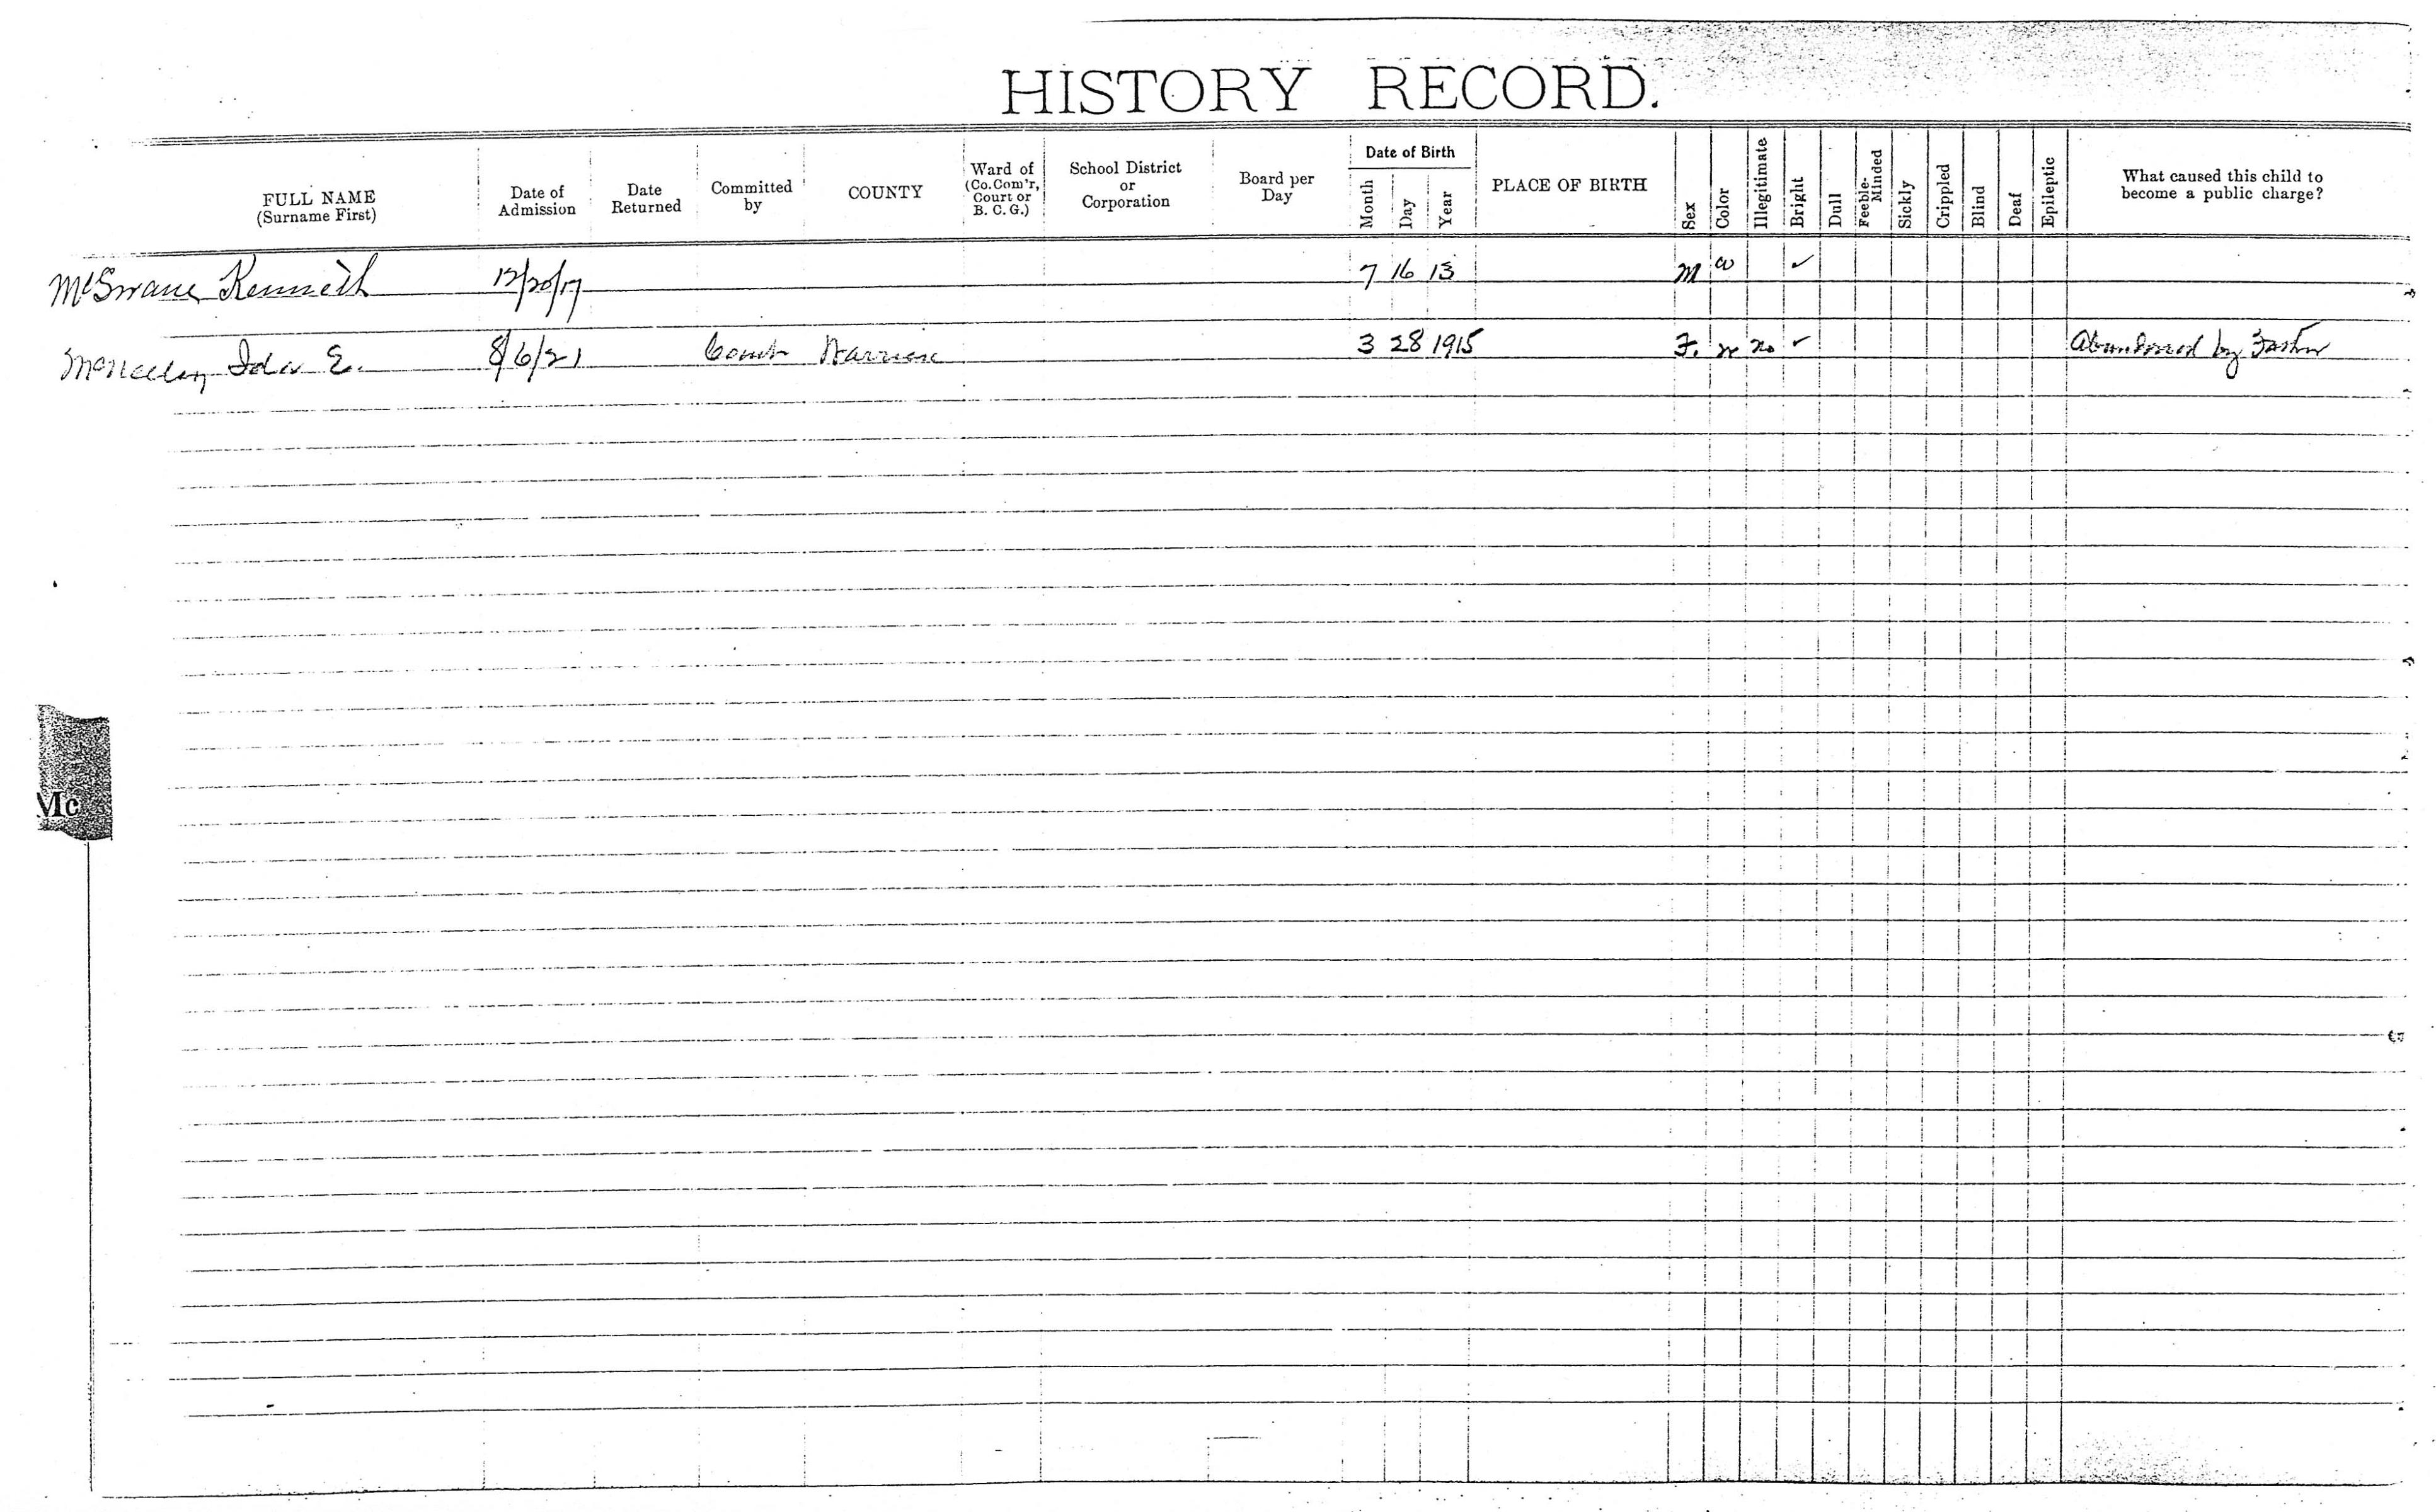 HISTORY RECORD.
FULL NAME
(Surname First)
Date of
Admission
Date
Returned
Committed
by
COUNTY
Ward of
(Co. Com'r,
Court or
B. C. G.)
School District
or
Corporation
Board per
Day
Date of Birth
Month
Day
Year
PLACE OF BIRTH
Sex
Color
Illegitimate
Bright
Dull
Feeble-
Minded
Sickly
Crippled
Blind
Deaf
Epileptic
What caused this child to
become a public charge?
McSwane Kenneth 12/20/17 7 16 13 M W ✓
Ida E. 8/6/21 Court Warren 3 28 1915 F. W no ✓ Abandoned by Father
Mc